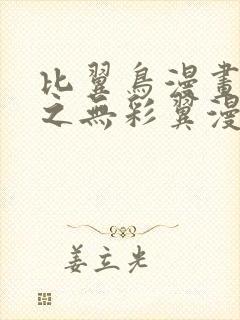 比翼鳥漫畫
之無彩翼漫
姜立光